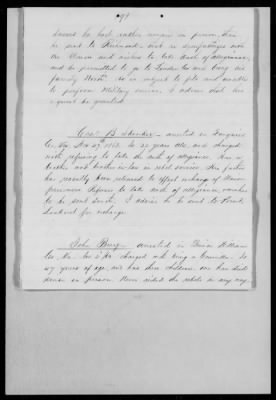 desired he had rather remain in prison, than
be sent to Richmond,
the Union and wishes to take Oath of Allegiance,
and be permitted to go to Loudon Co. and carry his
family North. He is subject to fits and unable
to perform Military service. I advise that his
request be granted.
Chas. B. arrested in Fauquier
Co. Va. Nov 29th 1863. Is 22 years old, and charged
with refusing to take the oath of allegiance. Has a
brother and brother in law in rebel service. His father
has recently been released to effect exchange of Union
prisoners. Refuses to take oath of allegiance, wishes
to be sent South. I advise he be sent to Point
Lookout for exchange.
John arrested in Prince William
Co. Va. charged with being a Is
47 years of age, and has three children one has died
since in prison. Never aided the rebels in any way